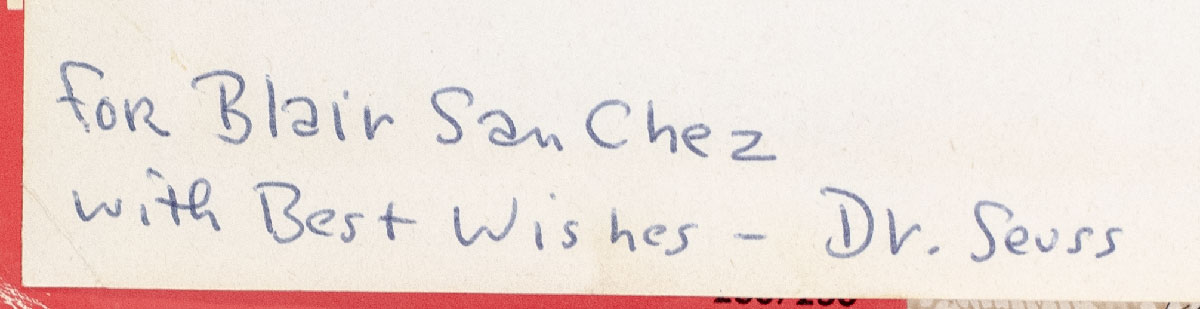 for Blair SanChez
with Best Wishes - Dr. Seuss